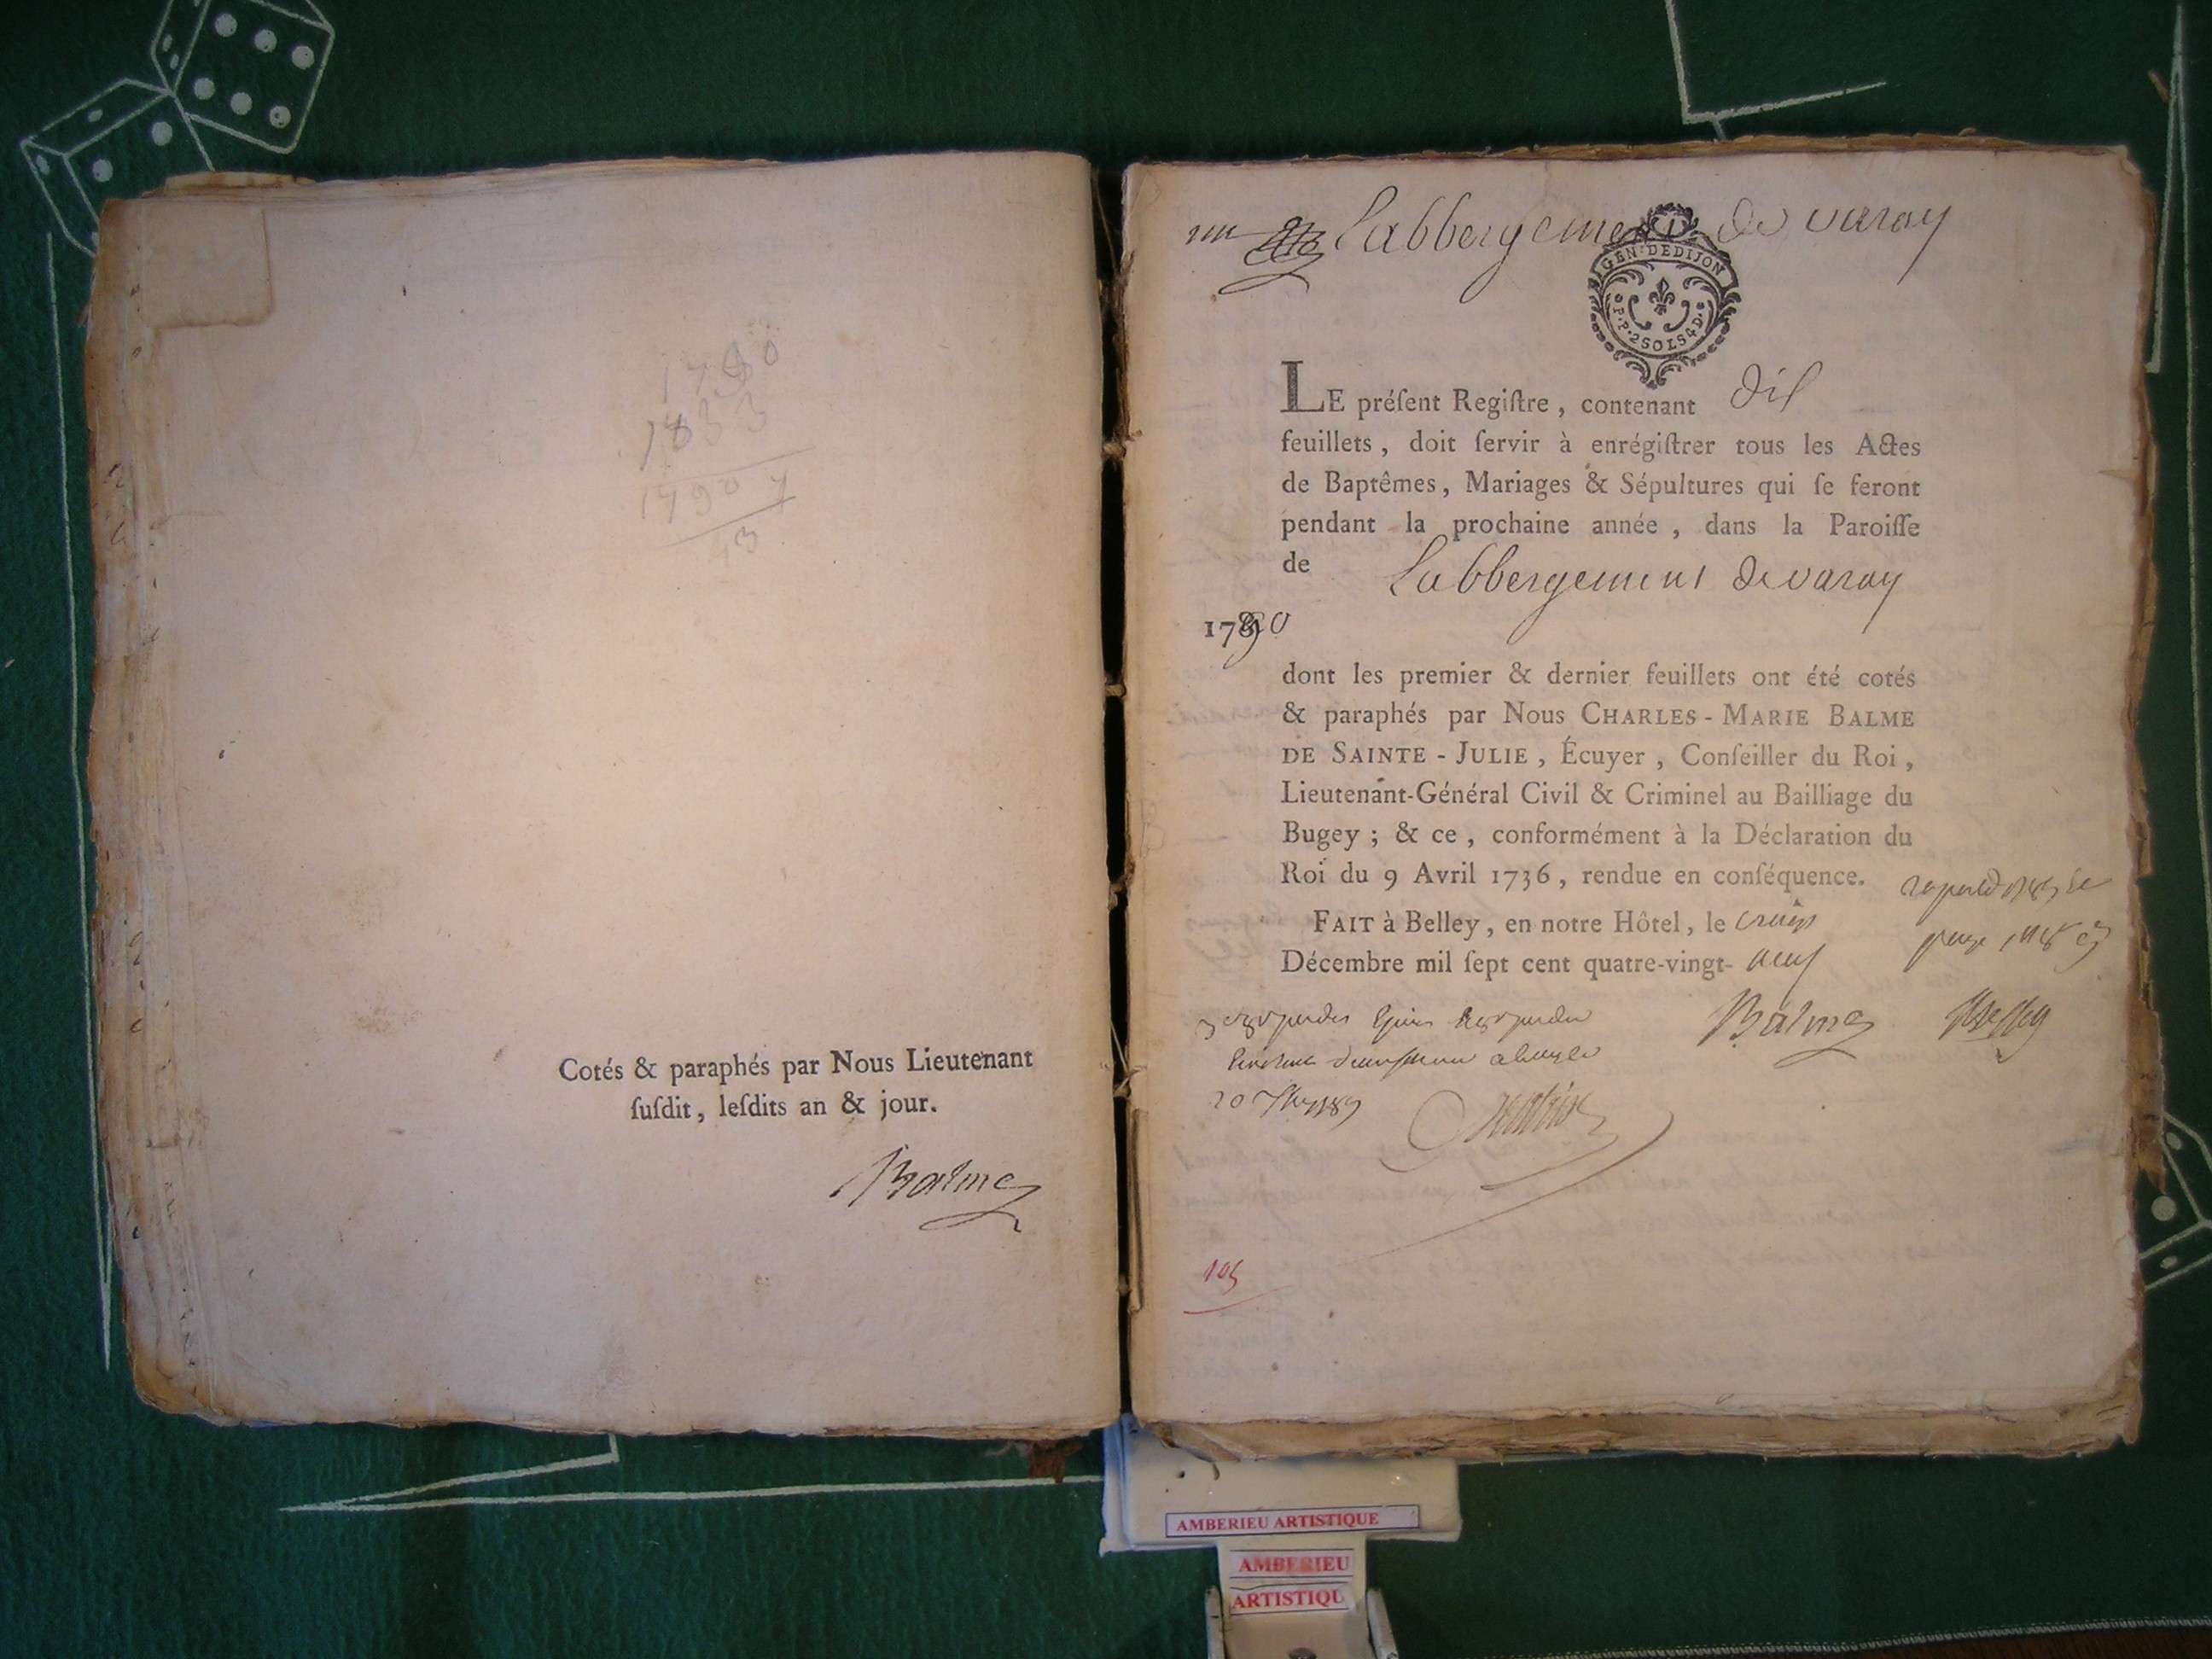 1790
1833
1790
43
Cotés & paraphés par Nous Lieutenant
ſuſdit, leſdits an & jour.
Balme
Labbergement de varay
GEN. DE DIJON
P.P. 2 SOLS 4 D.
LE préſent Regiſtre, contenant dix
feuillets, doit ſervir à enrégiſtrer tous les Actes
de Baptêmes, Mariages & Sépultures qui ſe feront
pendant la prochaine année, dans la Paroiſſe
de Labbergement de varay
1790
dont les premier & dernier feuillets ont été cotés
& paraphés par Nous CHARLES-MARIE BALME
DE SAINTE-JULIE, Écuyer, Conſeiller du Roi,
Lieutenant-Général Civil & Criminel au Bailliage du
Bugey; & ce, conformément à la Déclaration du
Roi du 9 Avril 1736, rendue en conſéquence.
FAIT à Belley, en notre Hôtel, le
Décembre mil ſept cent quatre-vingt- neuf
Balme
105
AMBERIEU ARTISTIQUE
AMBERIEU
ARTISTIQU